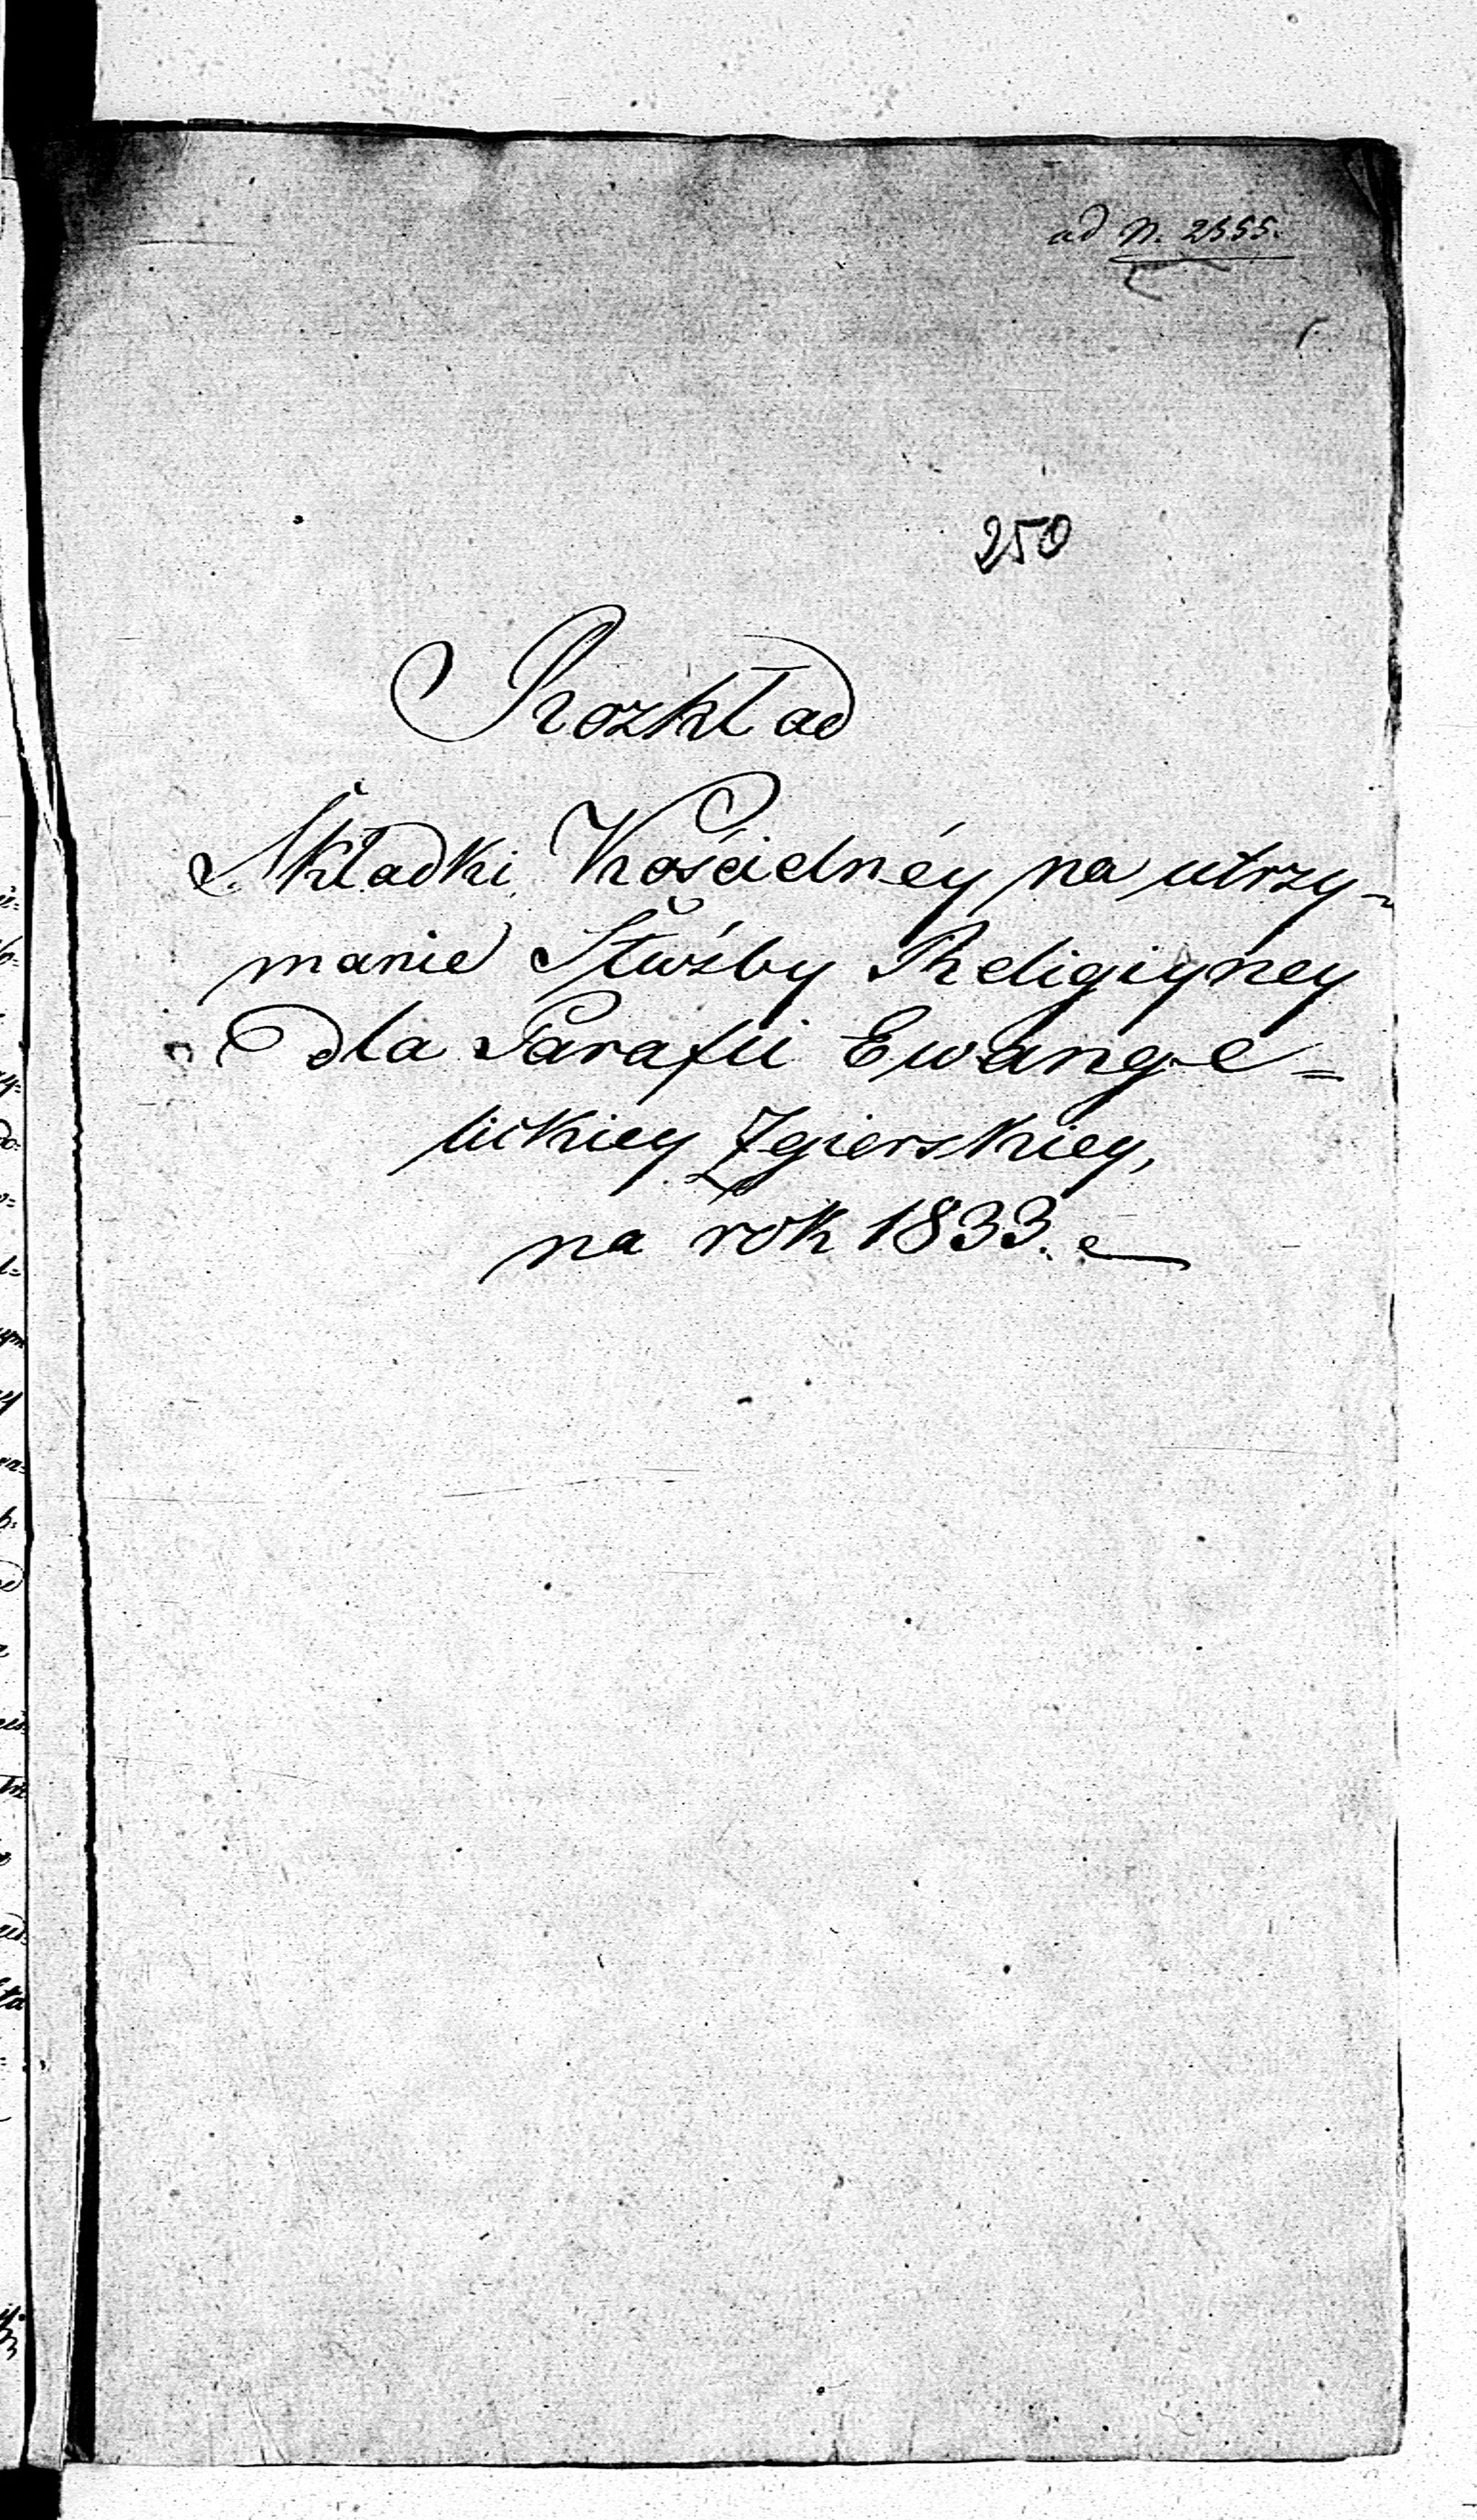 ad N. 2355.
250
Rozkład
Składki Kościelnéy na utrzy-
manie Służby Religiyney
dla Parafii Ewange=
lickiey Zgierskiey,
na rok 1833.